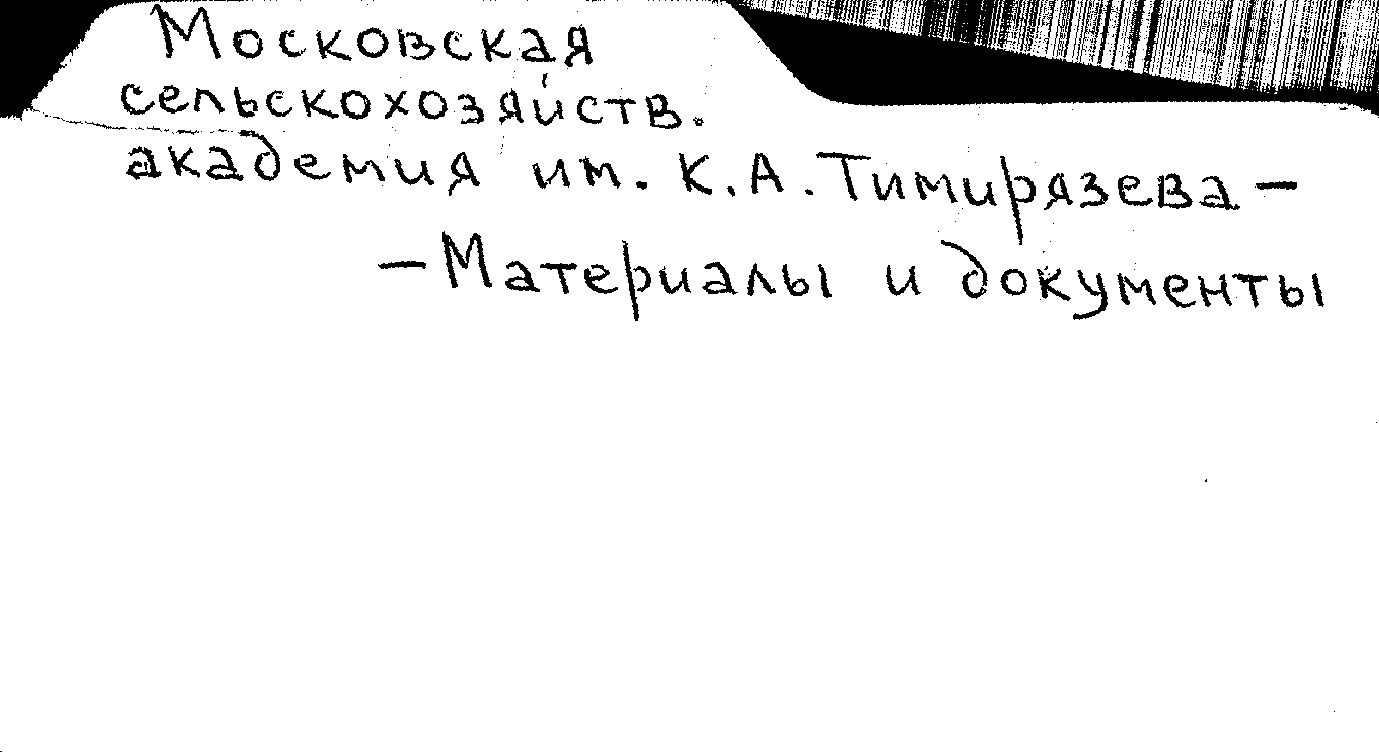 Московская
сельскохозяйств.
академия им. К.А.Тимирязева –
– Материалы и документы